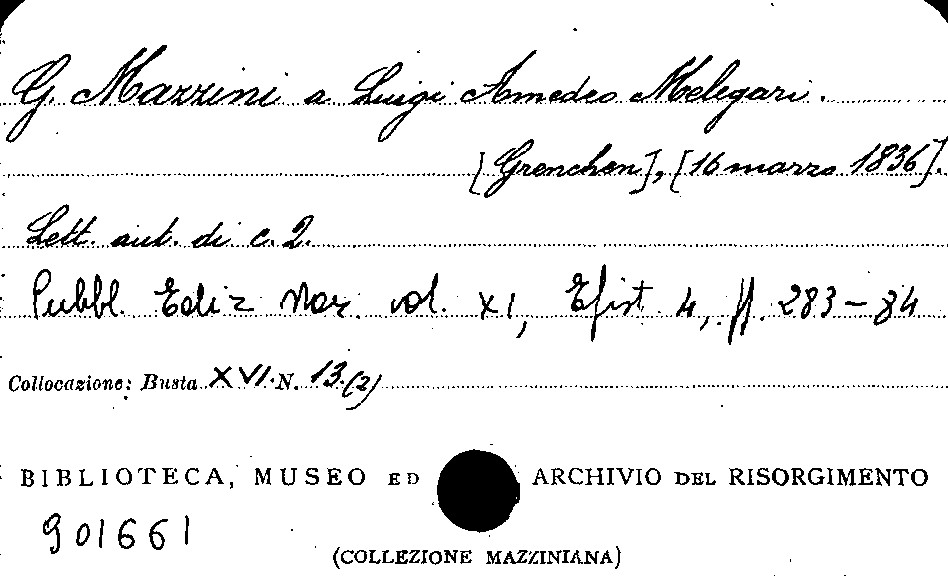 G. Mazzini a Luigi Amedeo Melegari.
[Grenchen], [16 marzo 1836].
Lett. aut. di c. 2.
Pubbl. Ediz Naz. vol. XI, Epist. 4, pp. 283-84
Collocazione: Busta XVI. N. 13.(2)
BIBLIOTECA, MUSEO ED ARCHIVIO DEL RISORGIMENTO
901661
(COLLEZIONE MAZZINIANA)